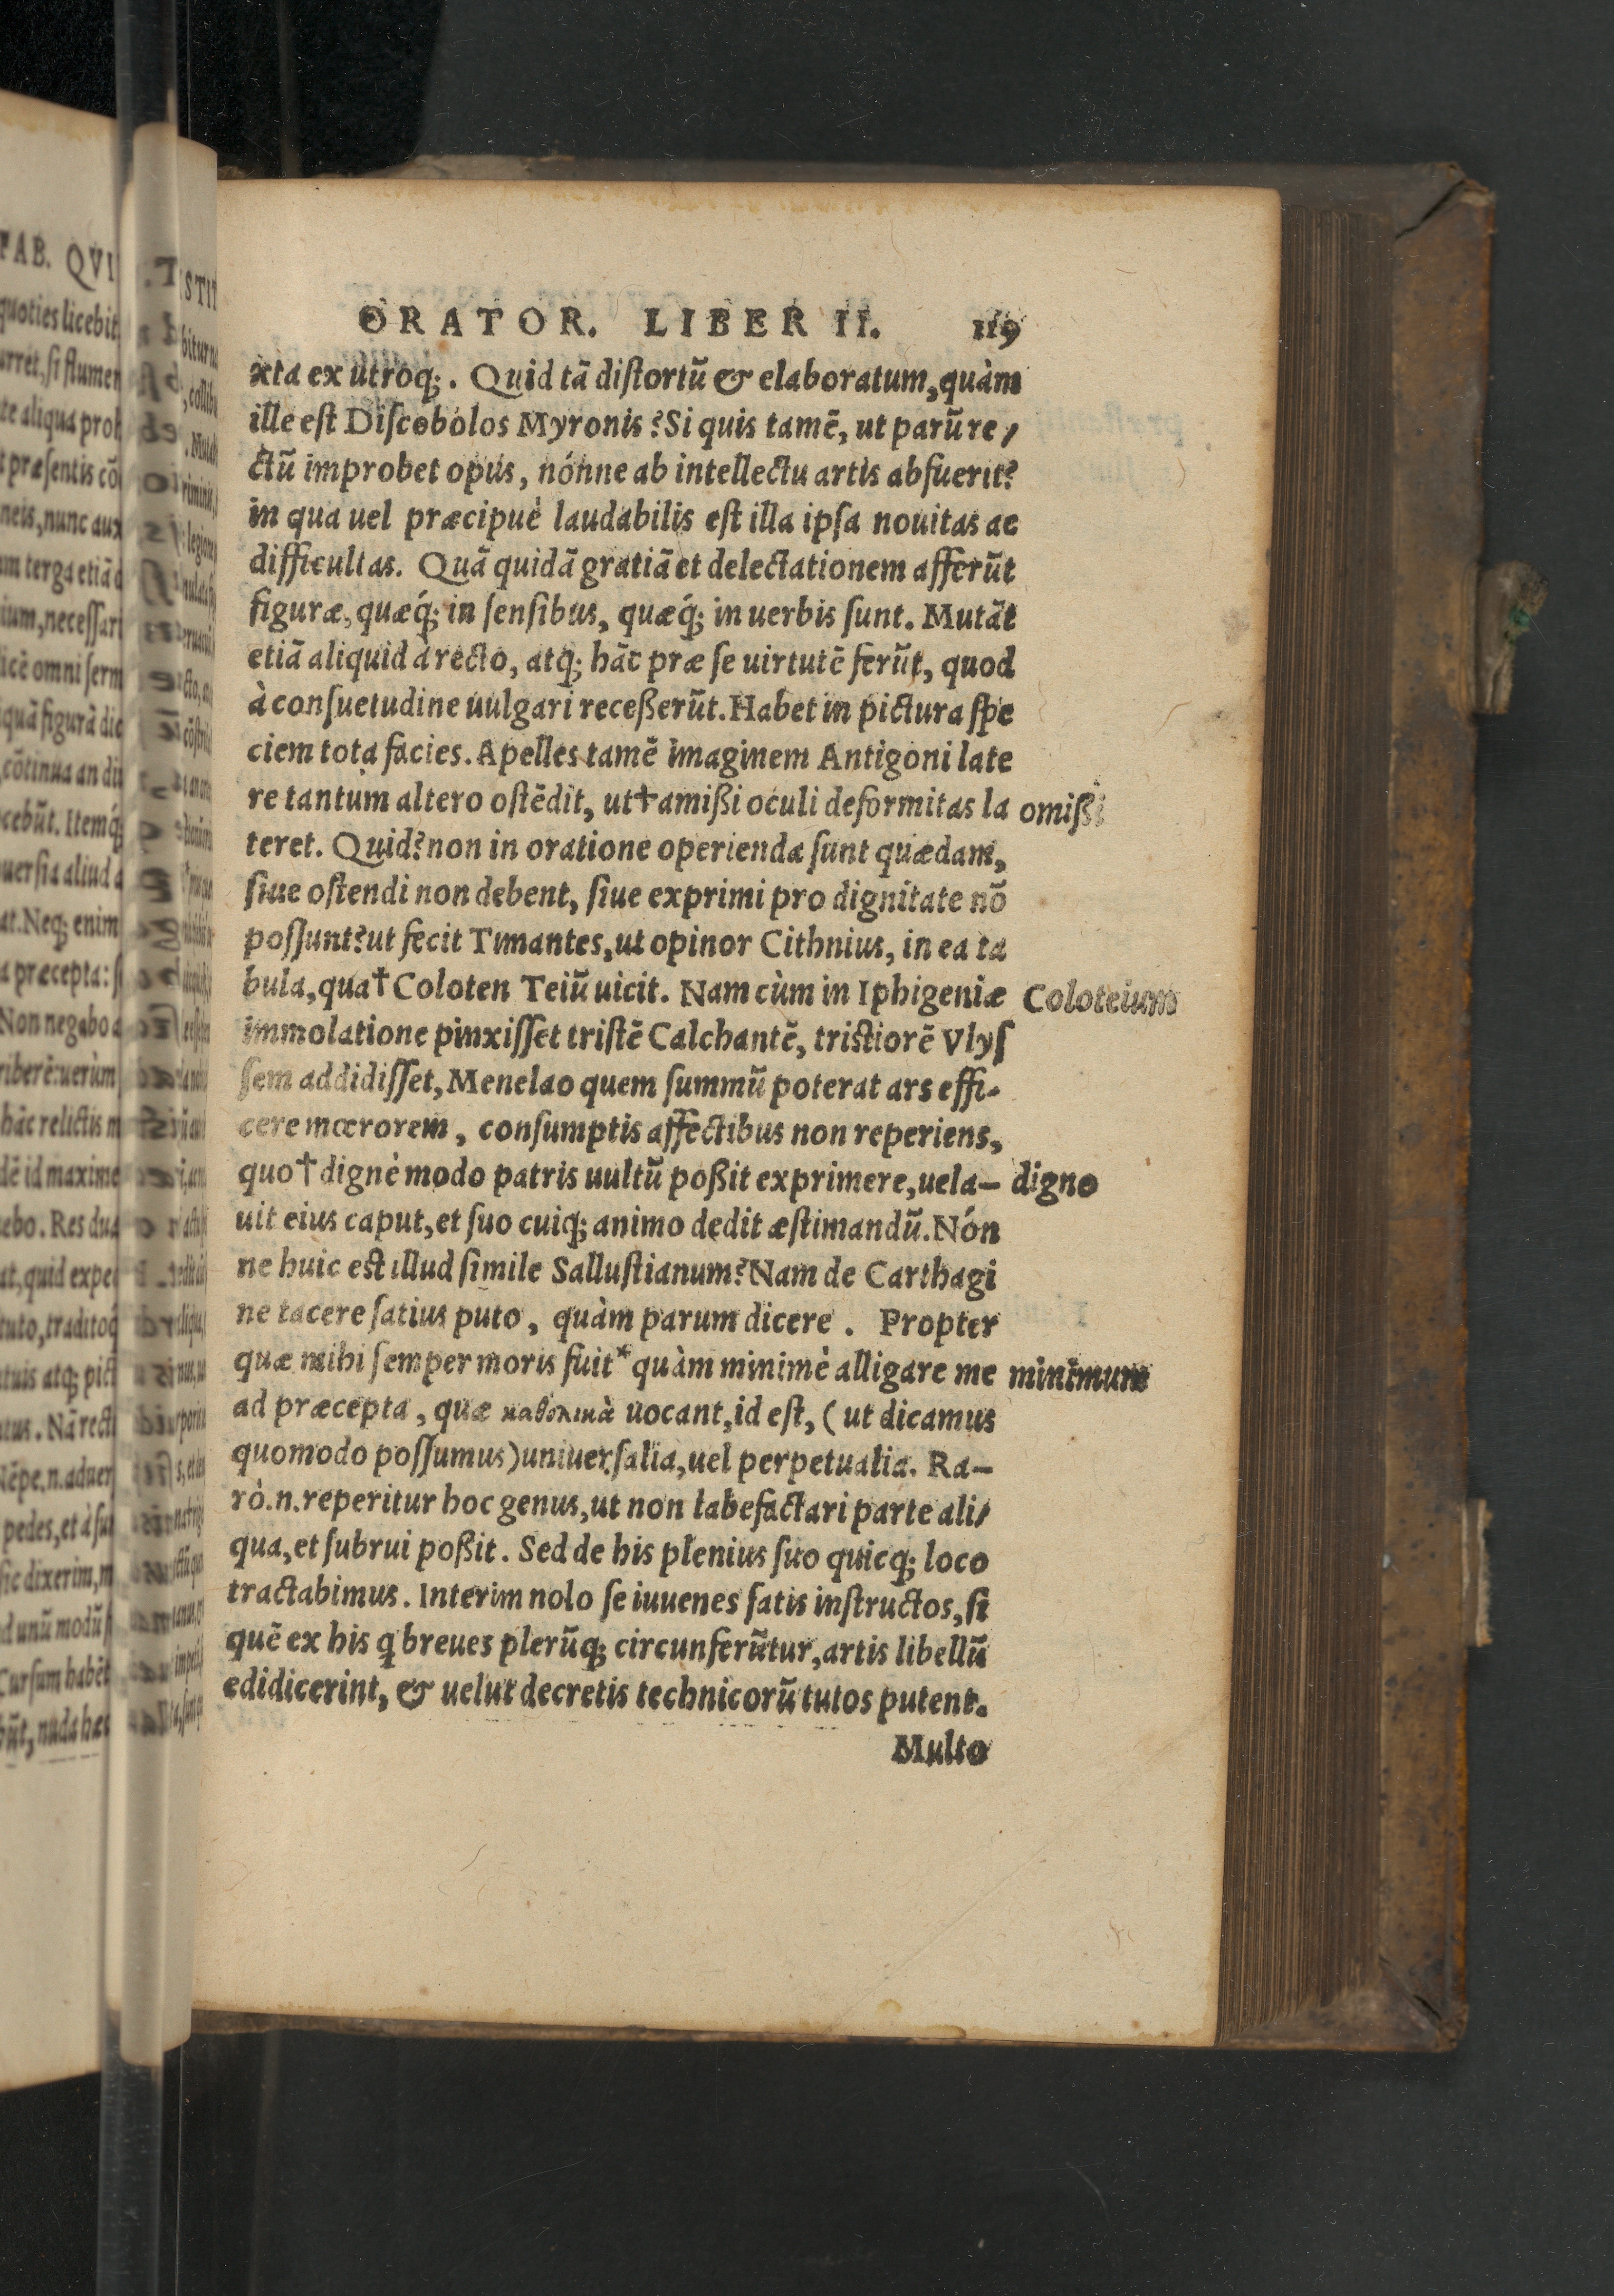 ORATOR. LIBER II. 119
xta ex utroq;. Quid tā distortū & elaboratum, quàm
ille est Discobolos Myronis? Si quis tamē, ut parū re/
ctū improbet opus, nónne ab intellectu artis abfuerit?
in qua uel præcipuè laudabilis est illa ipsa nouitas ac
difficultas. Quā quidā gratiā et delectationem afferūt
figuræ, quæq́; in sensibus, quæq́; in uerbis sunt. Mutāt
etiā aliquid à recto, atq; hāc præ se uirtutē ferūt, quod
à consuetudine uulgari receßerūt. Habet in pictura spe
ciem tota facies. Apelles tamē imaginem Antigoni late
re tantum altero ostēdit, ut † amißi oculi deformitas la omißi
teret. Quid? non in oratione operienda sunt quædam,
siue ostendi non debent, siue exprimi pro dignitate nō
possunt? ut fecit Timantes, ut opinor Cithnius, in ea ta
bula, qua † Coloten Teiū uicit. Nam cùm in Iphigeniæ Coloteium
immolatione pinxisset tristē Calchantē, tristiorē Vlys
sem addidisset, Menelao quem summū poterat ars effi-
cere mœrorem, consumptis affectibus non reperiens,
quo † dignè modo patris uultū poßit exprimere, uela- digno
uit eius caput, et suo cuiq; animo dedit æstimandū. Nón
ne huic est illud simile Sallustianum? Nam de Carthagi
ne tacere satius puto, quàm parum dicere. Propter
quæ mihi semper moris fuit * quàm minimè alligare me minimum
ad præcepta, quæ καθολικὰ uocant, id est, (ut dicamus
quomodo possumus) uniuersalia, uel perpetualia. Ra-
rò.n. reperitur hoc genus, ut non labefactari parte ali/
qua, et subrui poßit. Sed de his plenius suo quicq; loco
tractabimus. Interim nolo se iuuenes satis instructos, si
quē ex his q breues plerūq; circunferūtur, artis libellū
edidicerint, & uelut decretis technicorū tutos putent.
Multo